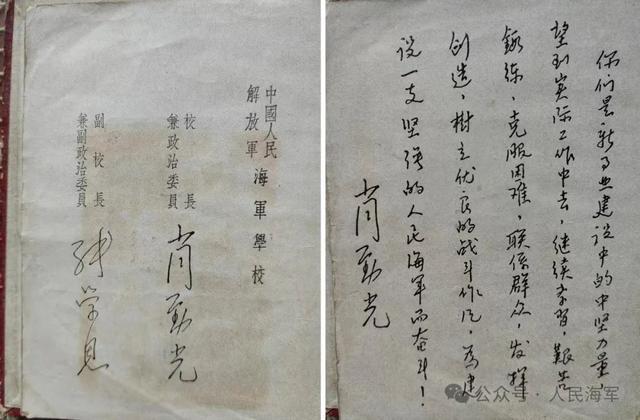 中國人民
解放軍
海軍學校
校長
兼政治委員
肖劲光
副校長
兼副政治委員
张学思
你们是新事业建设中的中坚力量,
望到实际工作中去,继续学习,艰苦
锻练,克服困难,联係群众,发挥
创造,树立优良的战斗作风,为建
设一支坚强的人民海军而奋斗!
肖劲光
公众号 · 人民海军